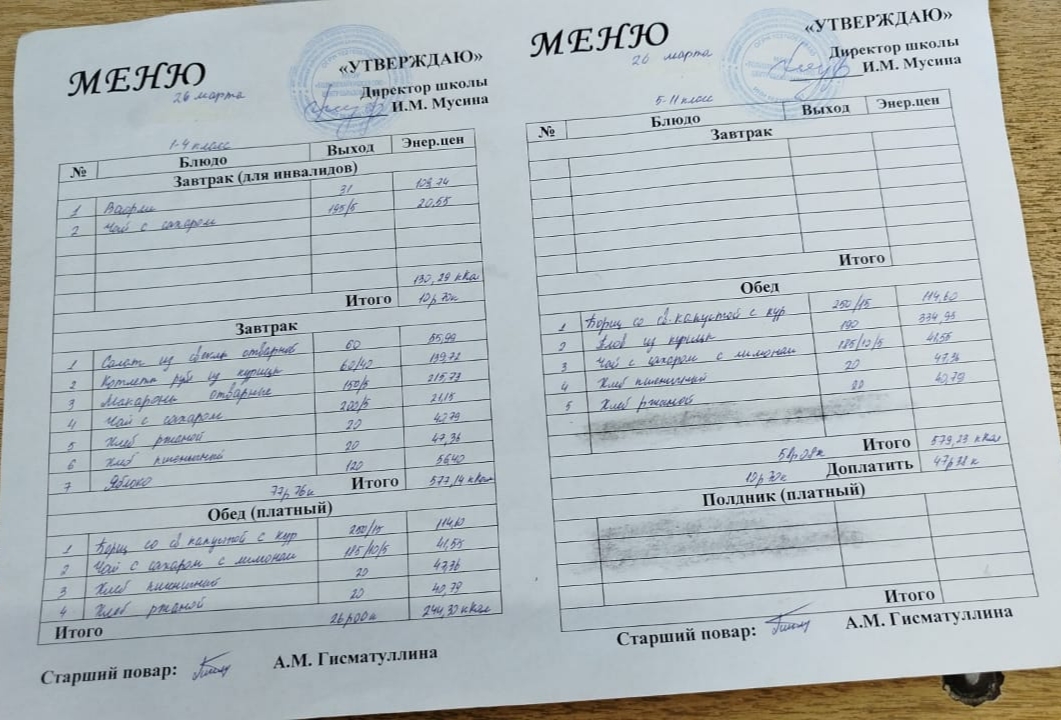 МЕНЮ
«УТВЕРЖДАЮ»
Директор школы
И.М. Мусина
26 марта
1-4 класс
№ Блюдо Выход Энер.цен
Завтрак (для инвалидов)
1 Вафли 31 109,74
2 Чай с сахаром 195/5 20,55
130,29 кКал
Итого 10р 70к
Завтрак
1 Салат из свеклы отварной 60 55,99
2 Котлета руб из курицы 60/40 139,72
3 Макароны отварные 150/5 215,73
4 Чай с сахаром 200/5 21,15
5 Хлеб ржаной 20 40,79
6 Хлеб пшеничный 20 47,36
7 Яблоко 120 56,40
77р 76к Итого 577,14 кКал
Обед (платный)
1 Борщ со св капустой с кур 250/15 114,60
2 Чай с сахаром с лимоном 185/10/5 41,55
3 Хлеб пшеничный 20 47,36
4 Хлеб ржаной 20 40,79
Итого 26р00к 244,30 кКал
Старший повар: А.М. Гисматуллина
МЕНЮ
«УТВЕРЖДАЮ»
Директор школы
И.М. Мусина
26 марта
5-11 класс
№ Блюдо Выход Энер.цен
Завтрак
Итого
Обед
1 Борщ со св. капустой с кур 250/15 114,60
2 Плов из курицы 190 334,93
3 Чай с сахаром с лимоном 185/10/5 41,55
4 Хлеб пшеничный 20 47,36
5 Хлеб ржаной 20 40,79
58р08к Итого 579,23 кКал
10р 70к Доплатить 47р38к
Полдник (платный)
Итого
Старший повар: А.М. Гисматуллина